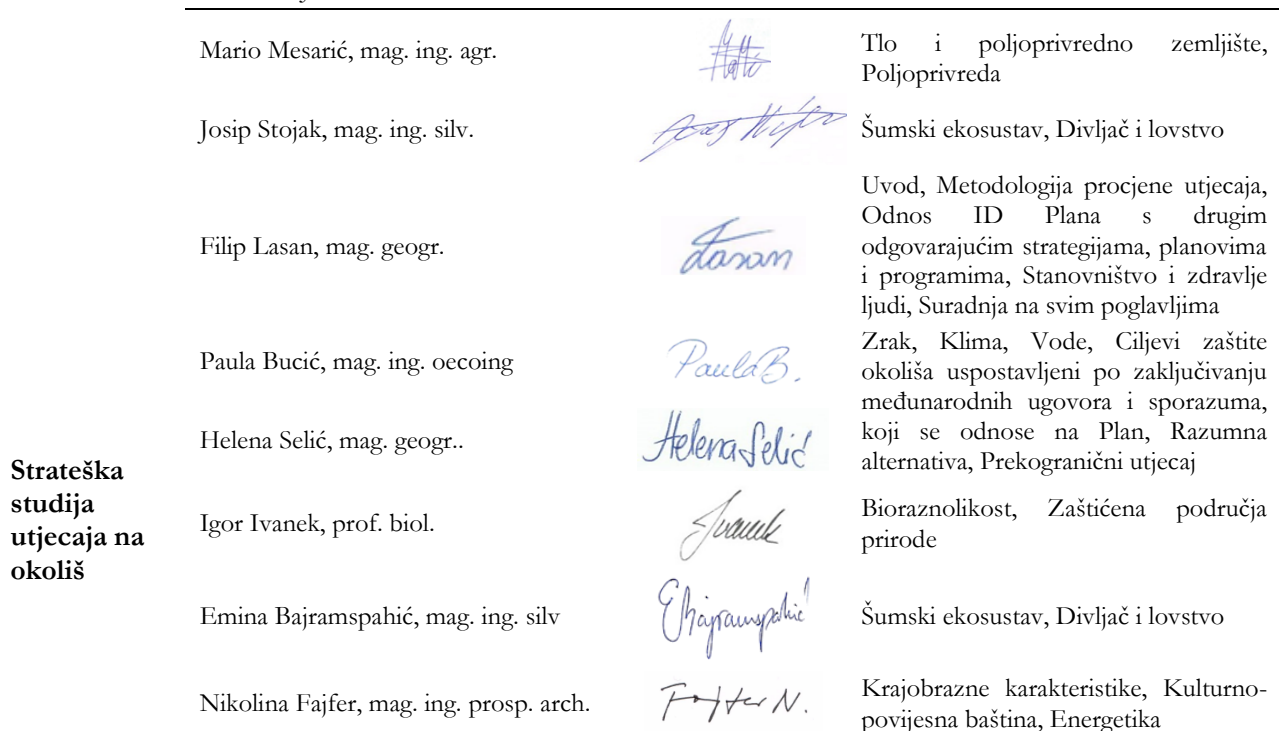 Mario Mesarić, mag. ing. agr.
Tlo i poljoprivredno zemljište,
Poljoprivreda
Josip Stojak, mag. ing. silv.
Šumski ekosustav, Divljač i lovstvo
Filip Lasan, mag. geogr.
Lasan
Uvod, Metodologija procjene utjecaja,
Odnos ID Plana s drugim
odgovarajućim strategijama, planovima
i programima, Stanovništvo i zdravlje
ljudi, Suradnja na svim poglavljima
Paula Bucić, mag. ing. oecoing
Paula B.
Helena Selić, mag. geogr..
Helena Selić
Zrak, Klima, Vode, Ciljevi zaštite
okoliša uspostavljeni po zaključivanju
međunarodnih ugovora i sporazuma,
koji se odnose na Plan, Razumna
alternativa, Prekogranični utjecaj
Strateška
studija
utjecaja na
okoliš
Igor Ivanek, prof. biol.
Ivanek
Bioraznolikost, Zaštićena područja
prirode
Emina Bajramspahić, mag. ing. silv
EBajramspahić
Šumski ekosustav, Divljač i lovstvo
Nikolina Fajfer, mag. ing. prosp. arch.
Fajfer N.
Krajobrazne karakteristike, Kulturno-
povijesna baština, Energetika